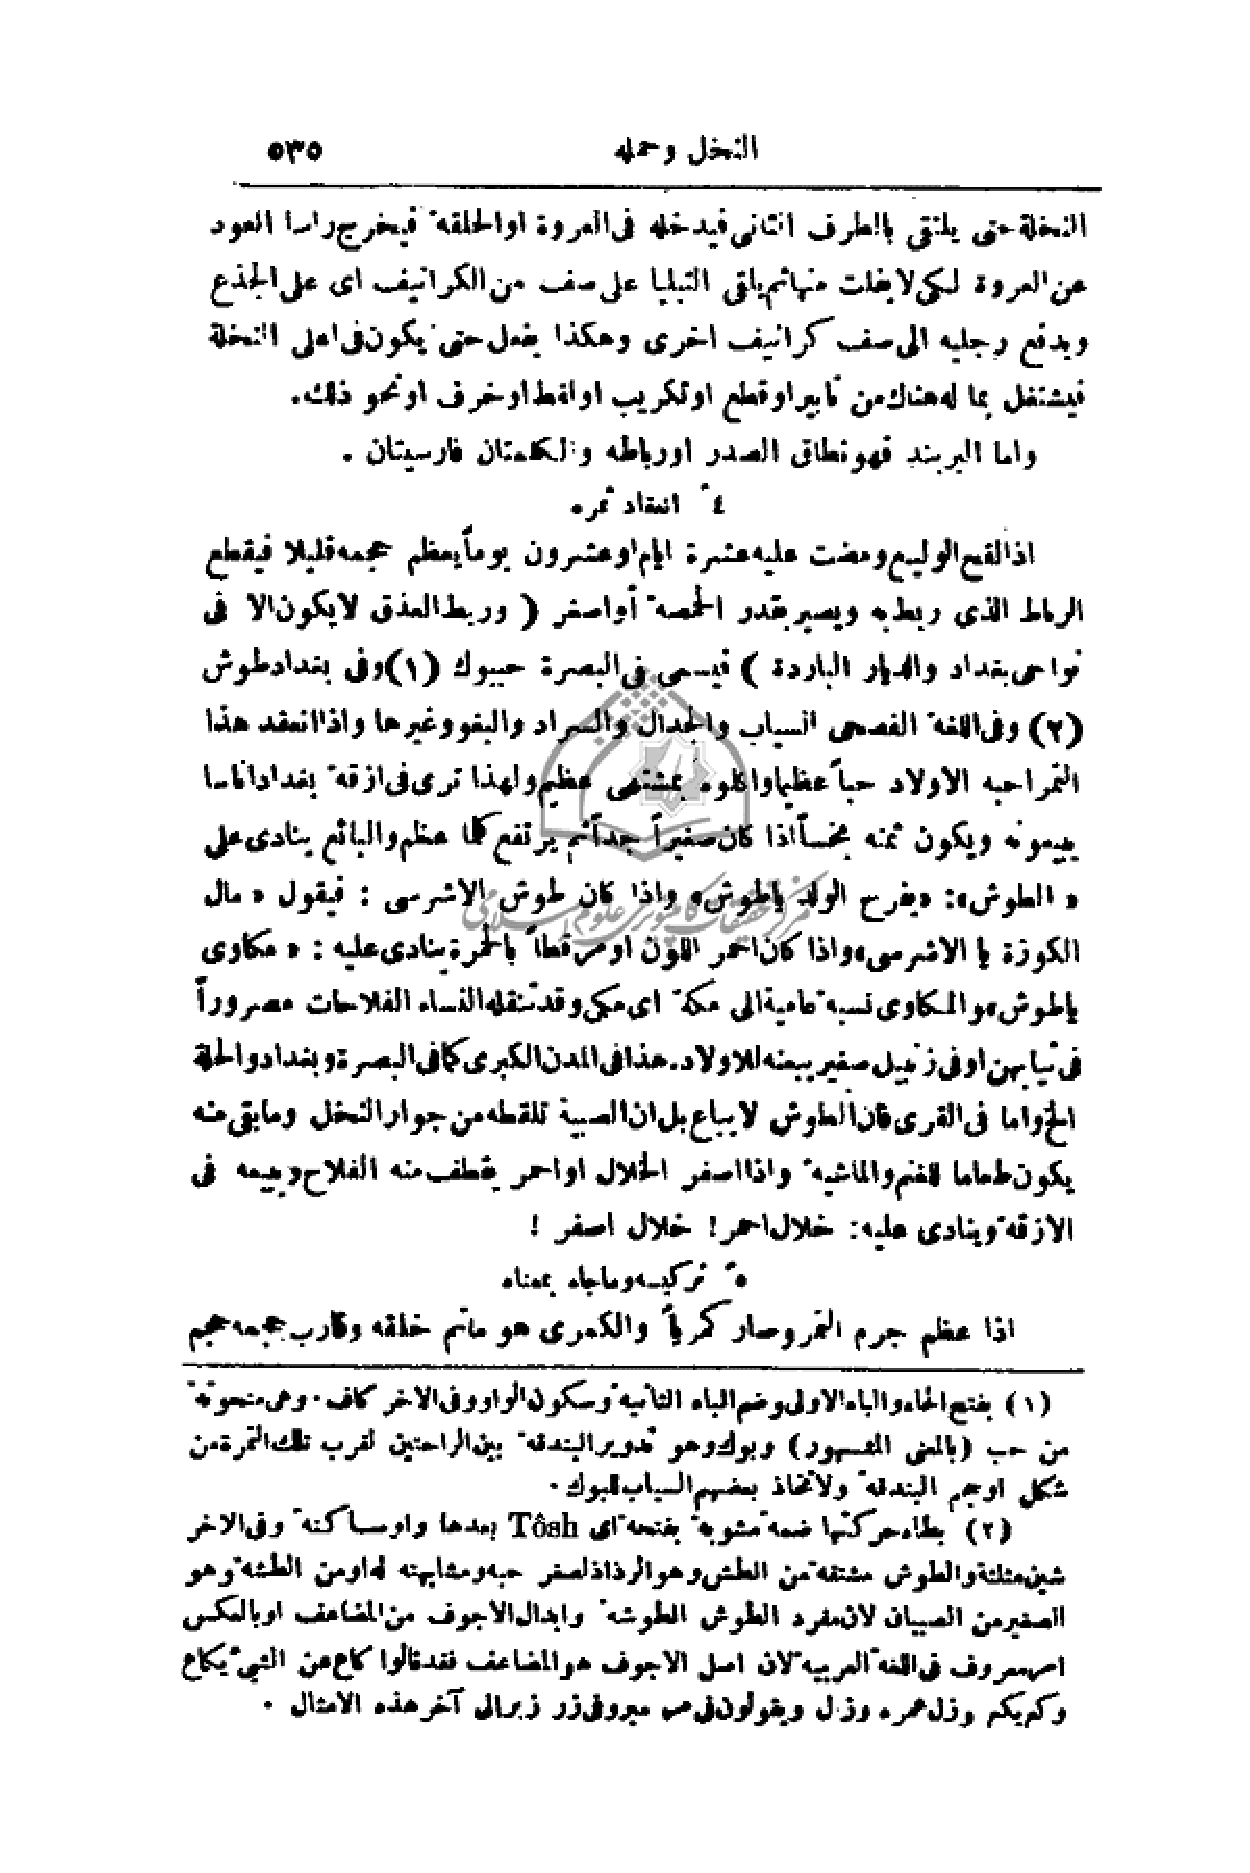 النخل وحمله ٥٣٥
النخلة حتى يلتقي بالطرف الثاني فيدخله في العروة او الحلقة فيخرج راسا العود
عن العروة لكي لا يفلت منها ثم يلقي التبليا على صف من الكرانيف اي على الجذع
ويدفع رجليه الى صف كرانيف اخرى وهكذا يفعل حتى يكون في اعلى النخلة
فيشتغل بما له هناك من تابير او قطع او تكريب او لقط او خرف او نحو ذلك.
واما البربند فهو نطاق الصدر او رباطه والكلمتان فارسيتان .
٤ً انعقاد ثمره
اذا لقح الوليع ومضت عليه عشرة ايام او عشرون يوماً يعظم حجمه قليلا فيقطع
الرباط الذي ربط به ويصير بقدر الحمصة أو اصغر ( وربط العذق لا يكون الا في
نواحي بغداد والديار الباردة ) فيسمى في البصرة حببوك (١) وفي بغداد طوش
(٢) وفي اللغة الفصحى السياب والجدال والسراد والبغو وغيرها واذا انعقد هذا
التمر احبه الاولاد حباً عظيما واكلوه بمشتهى عظيم ولهذا ترى في ازقة بغداد اناسا
يبيعونه ويكون ثمنه بخساً اذا كان صغيراً جداً ثم يرتفع كلما عظم والبائع ينادي على
« الطوش »: «يفرح الولد ياطوش» واذا كان طوش الاشرسي : فيقول « مال
الكوزة يا الاشرسي» واذا كان احمر اللون او مرقطاً بالحمرة ينادي عليه : « مكاوي
ياطوش» والمكاوي نسبة عامية الى مكة اي مكي وقد تنقله النساء الفلاحات مصروراً
في ثيابهن او في زنبيل صغير يبعنه للاولاد. هذا في المدن الكبرى كما في البصرة وبغداد والحلة
الخ واما في القرى فان الطوش لا يباع بل ان الصبية تلقطه من جوار النخل وما بقي منه
يكون طعاما للغنم والماشية واذا اصفر الخلال او احمر يقطف منه الفلاح ويبيعه في
الازقة وينادي عليه: خلال احمر! خلال اصفر !
٥ً تركيبه وما جاء بمعناه
اذا عظم جرم التمر وصار كمرياً والكمرى هو ماتم خلقه وقارب حجمه حجم
(١) بفتح الحاء والباء الاولى وضم الباء الثانية وسكون الواو وفي الاخر كاف . وهي منحوتة
من حب (بالمعنى المشهور) وبوك وهو تدوير البندقة بين الراحتين لقرب تلك التمرة من
شكل او حجم البندقة ولاتخاذ بعضهم السياب للبوك .
(٢) بطاء حركتها ضمة مشوبة بفتحة اي Tôsh بعدها واو ساكنة وفي الاخر
شين مثلثة والطوش مشتقة من الطش وهو الرذاذ لصغر حبه ومشابهته له او من الطشة وهو
الصغير من الصبيان لان مفرد الطوش الطوشة وابدال الاجوف من المضاعف او بالعكس
امر معروف في اللغة العربية لان اصل الاجوف هو المضاعف فقد قالوا كاع عن الشيء يكاع
وكع يكع وزل عمره وزال ويقولون في صر صير وفي زر زير الى آخر هذه الامثال .